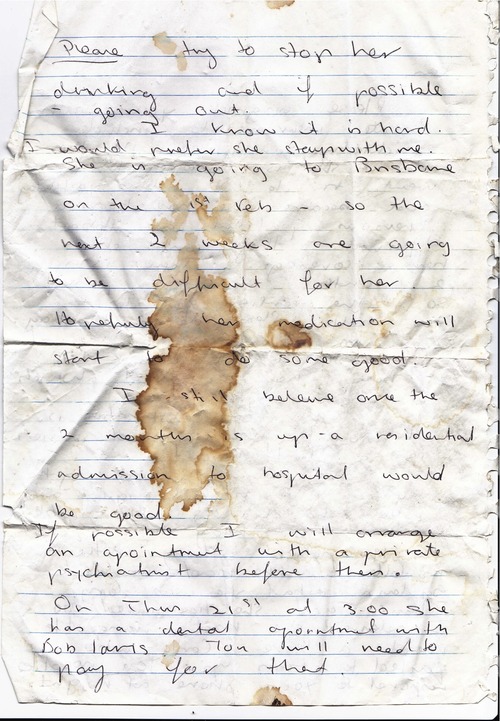 Please try to stop her
drinking and if possible
- going out.
I know it is hard.
I would prefer she stays with me.
She is going to Brisbane
on the 1st Feb - so the
next 2 weeks are going
to be difficult for her
her medication will
start to do some good.
I still believe once the
2 months is up - a residential
admission to hospital would
be good.
If possible I will arrange
an apointment with a private
psychiatrist before then.
On Thur 21st at 3.00 she
has a dental apointment with
Bob You will need to
pay for that.